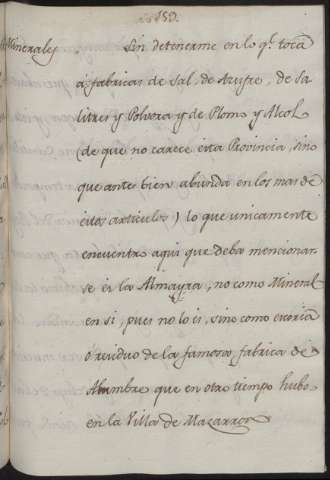 159.
Minerales Sin detenerme en lo q.e toca
á fabricas de Sal, de Azufre, de Sa-
litres y Polvora y de Plomo y Alcol
(de que no carece esta Provincia, sino
que antes bien abunda en los mas de
estos articulos) lo que unicamente
encuentro aqui que deba mencionar-
se es la Almagra, no como Mineral
en si, pues no lo es, sino como escoria
ó residuo de la famosa fabrica de
Alumbre que en otro tiempo hubo
en la Villa de Mazarron